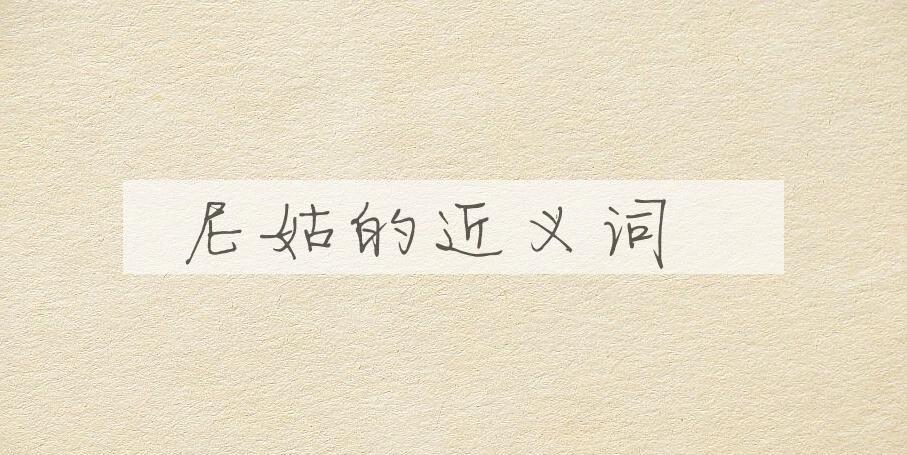 尼姑的近义词